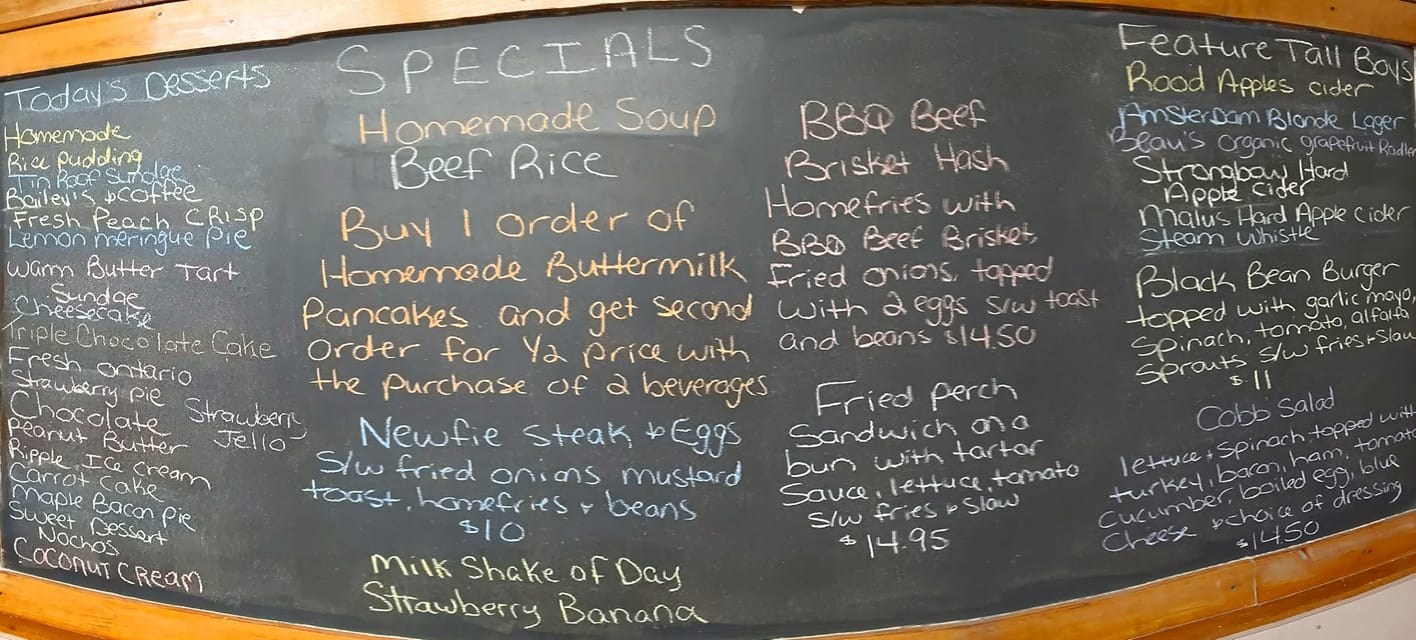 Today's Desserts
Homemade
Rice pudding
Tin Roof Sundae
Bailey's & Coffee
Fresh Peach CRisp
Lemon meringue Pie
Warm Butter Tart
Sundae
Cheesecake
Triple Chocolate Cake
Fresh ontario
Strawberry pie
Chocolate
Peanut Butter
Ripple Ice Cream
Strawberry
Jello
Carrot Cake
Maple Bacon pie
Sweet Dessert
Nachos
Coconut CReam
SPECIALS
Homemade Soup
Beef Rice
Buy 1 order of
Homemade Buttermilk
Pancakes and get second
order for 1/2 price with
the purchase of 2 beverages
Newfie Steak & Eggs
S/w fried onions mustard
toast, homefries & beans
$10
Milk Shake of Day
Strawberry Banana
BBQ Beef
Brisket Hash
Homefries with
BBQ Beef Brisket,
Fried onions, topped
with 2 eggs s/w toast
and beans $14.50
Fried perch
Sandwich on a
bun with tartar
Sauce, lettuce, tomato
S/w fries & Slaw
$14.95
Feature Tall Boys
Rood Apples cider
Amsterdam Blonde Lager
Beau's organic grapefruit Radler
Strongbow Hard
Apple Cider
Malus Hard Apple Cider
Steam Whistle
Black Bean Burger
topped with garlic mayo,
Spinach, tomato, alfalfa
Sprouts s/w fries + Slaw
$11
Cobb Salad
lettuce + Spinach topped with
turkey, bacon, ham, tomato
Cucumber, boiled egg, blue
Cheese & choice of dressing
$14.50